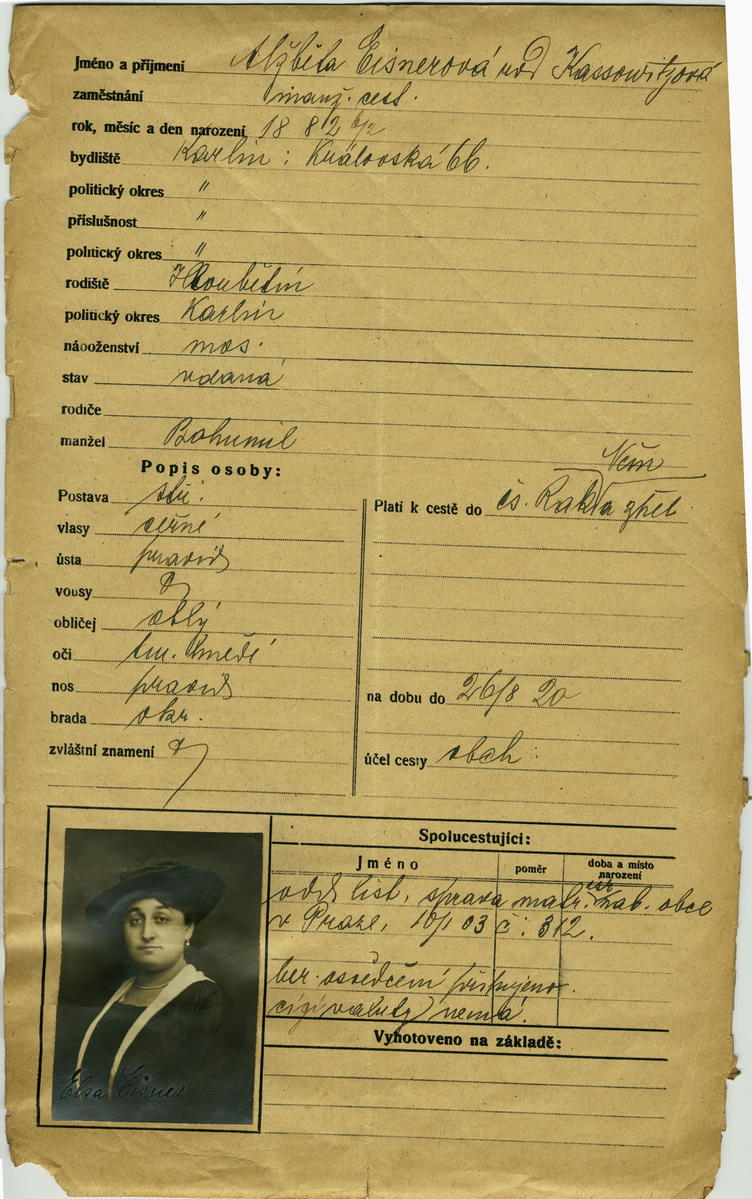 Jméno a příjmení Alžběta Eisnerová rod Kassowitzová
zaměstnání manž. cest.
rok, měsíc a den narození 18 82 6/2
bydliště Karlín: Královská 66.
politický okres "
příslušnost "
politický okres "
rodiště Hloubětín
politický okres Karlín
náboženství mos.
stav vdaná
rodiče
manžel Bohumil
Popis osoby:
Postava stř.
vlasy černé
ústa pravid
vousy
obličej oblý
oči tm. hnědé
nos pravid
brada okr.
zvláštní znamení
Něm
Platí k cestě do čs. Rak a zpět
na dobu do 26/8 20
účel cesty obch:
Spolucestující:
Jméno poměr doba a místo narození
odd list, správa matr. isr. nab. obce
v Praze, 10/1 03 č. 312.
ber. osvědčení připojeno.
cizí valuty nemá.
Vyhotoveno na základě:
Elsa Eisner